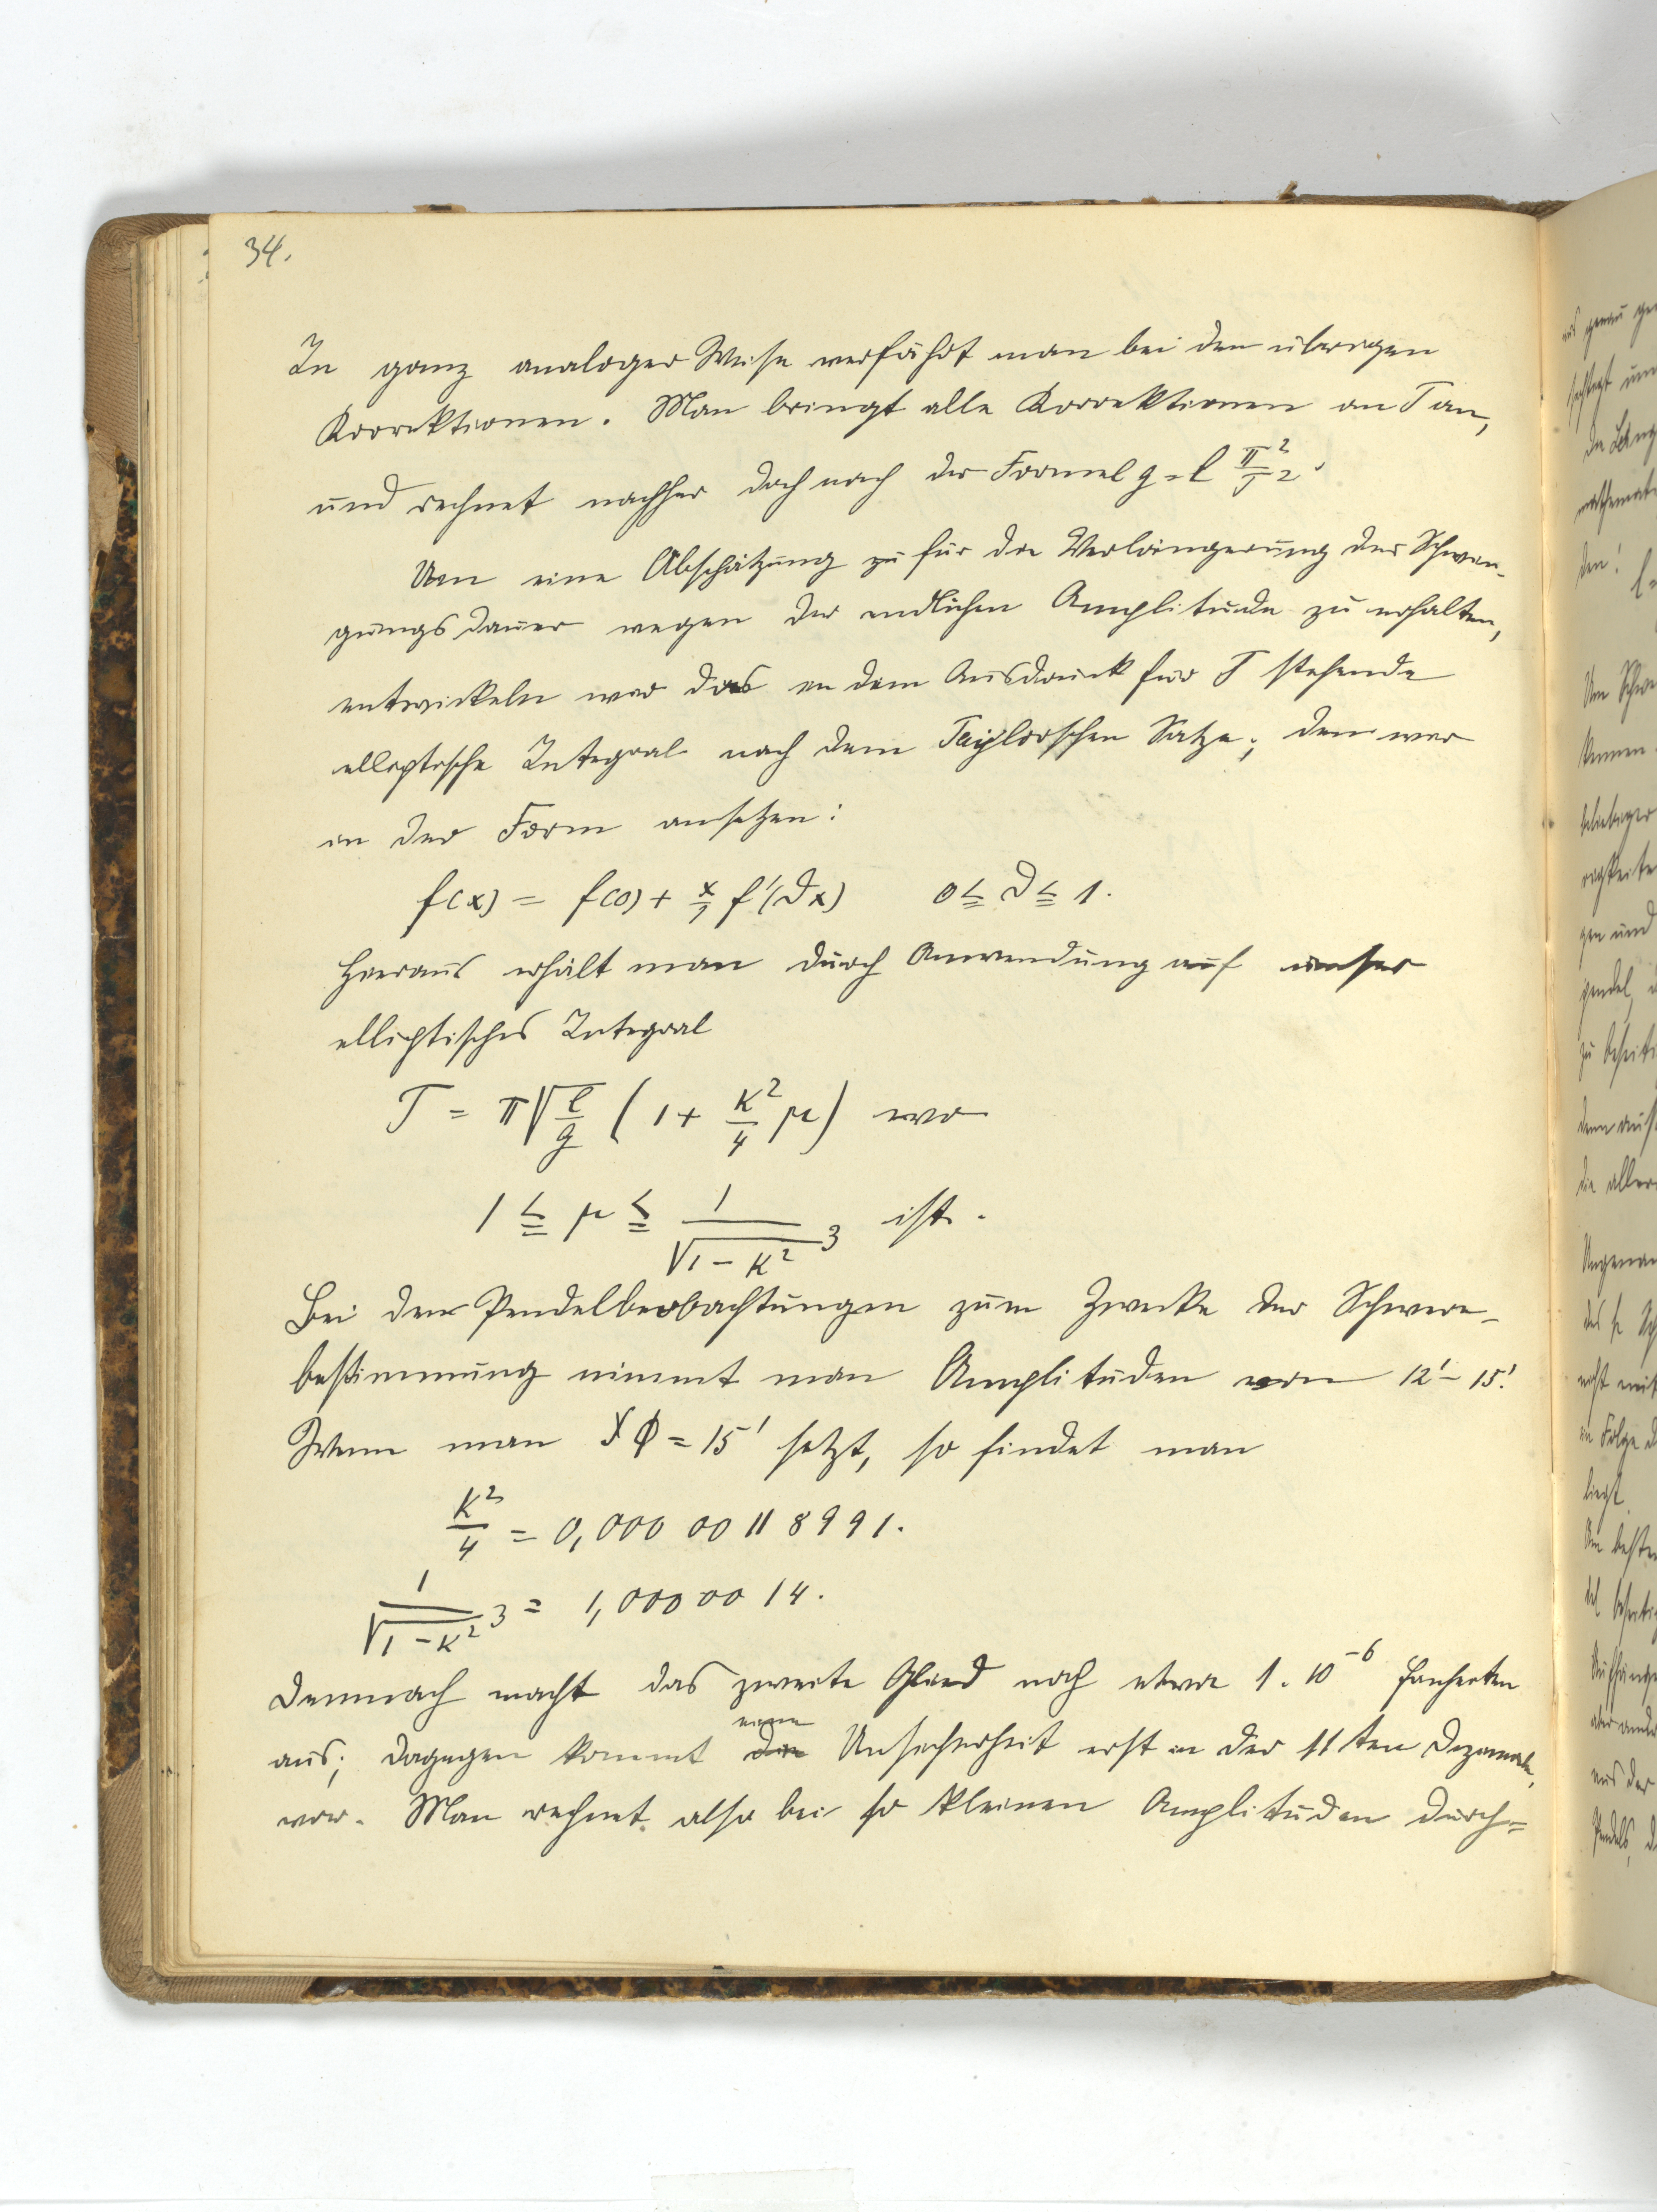 34.
In ganz analoger Weise verfährt man bei den übrigen
Korrektionen. Man bringt alle Korrektionen an T an,
und rechnet nachher doch nach der Formel g = l π²/T².
Um eine Abschätzung zu für die Verlängerung der Schwin-
gungsdauer wegen der endlichen Amplitude zu erhalten,
entwickeln wir das in dem Ausdruck für T stehende
elliptische Integral nach dem Taylorschen Satze, den wir
in der Form ansetzen:
f(x) = f(0) + x/1 f'(ϑx) 0 ≦ ϑ ≦ 1.
Hieraus erhält man durch Anwendung auf unser
elliptisches Integral
T = π√(l/g) (1 + K²/4 μ) wo
1 ≦ μ ≦ 1/√(1-K²)³ ist.
Bei den Pendelbeobachtungen zum Zwecke der Schwere-
bestimmung nimmt man Amplituden von 12' - 15'.
Wenn man ∢ϕ = 15' setzt, so findet man
K²/4 = 0,000 00 11 8991.
1/√(1-K²)³ = 1,000 00 14.
Demnach macht das zweite Glied noch etwa 1 . 10⁻⁶ Einheiten
aus; dagegen kommt die eine Unsicherheit erst in der 11ten Dezimale,
vor. Man rechnet also bei so kleinen Amplituden durch=